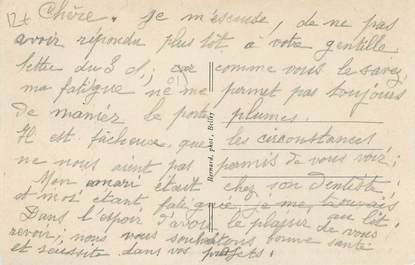 12 f
Chère. Je m'escuse, de ne pas
avoir répondu plus tôt, à votre gentille
lettre du 3 d; car comme vous le savez,
ma fatigue ne me permet pas toujours
de manier le porte plumes.
Il est facheuse que les circonstances,
ne nous aient pas permis de vous voir;
Mon mari était chez son dentiste!
et moi étant fatiguée, je me trouvais
au lit.
Dans l'espoir d'avoir le plaisir de vous
revoir; nous vous souhaitons bonne santé
et réussite dans vos projets.
Bernard, phot., Belley